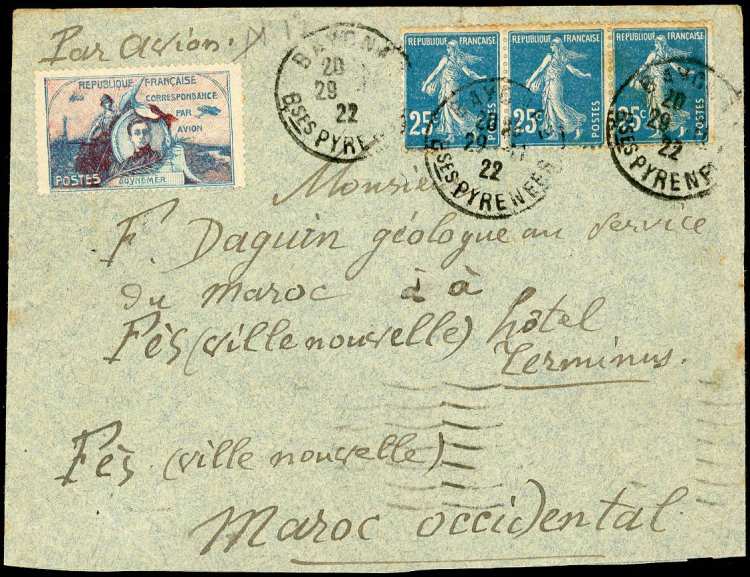 Par avion.
REPUBLIQUE FRANÇAISE
CORRESPONDANCE
PAR
AVION
POSTES
GUYNEMER
REPUBLIQUE FRANÇAISE
25c
POSTES
REPUBLIQUE FRANÇAISE
25c
POSTES
REPUBLIQUE FRANÇAISE
25c
POSTES
BAYONN
20
29
22
Bses PYRE
BAYO
20
29
22
Bses PYRENEES
BAYO
20
29
22
Bses PYRENE
Monsieur
F. Daguin géologue au service
du maroc à à
Fès (ville nouvelle) hôtel
Terminus.
Fès (ville nouvelle)
Maroc occidental